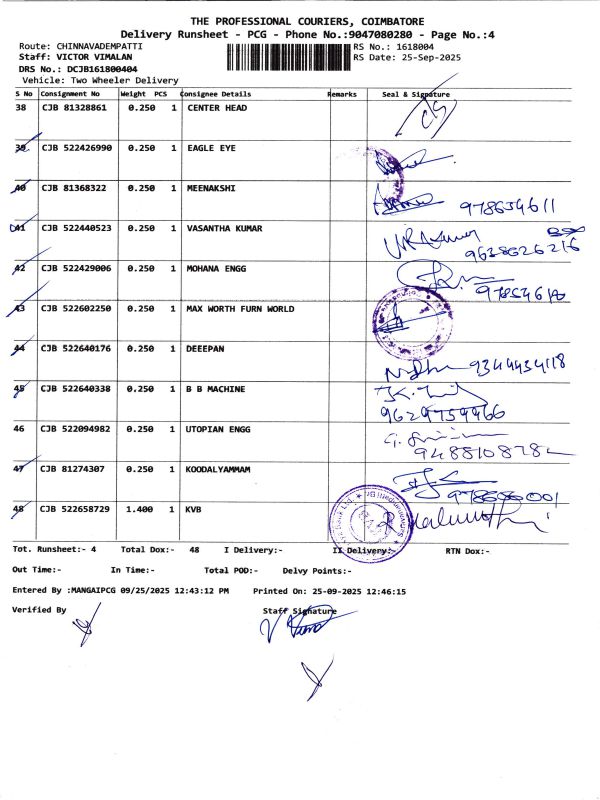 THE PROFESSIONAL COURIERS, COIMBATORE
Delivery Runsheet - PCG - Phone No.:9047080280 - Page No.:4
Route: CHINNAVADEMPATTI RS No.: 1618004
Staff: VICTOR VIMALAN RS Date: 25-Sep-2025
DRS No.: DCJB161800404
Vehicle: Two Wheeler Delivery
S No Consignment No Weight PCS Consignee Details Remarks Seal & Signature
38 CJB 81328861 0.250 1 CENTER HEAD
39 CJB 522426990 0.250 1 EAGLE EYE
40 CJB 81368322 0.250 1 MEENAKSHI
41 CJB 522440523 0.250 1 VASANTHA KUMAR 9638626216
42 CJB 522429006 0.250 1 MOHANA ENGG
43 CJB 522602250 0.250 1 MAX WORTH FURN WORLD
44 CJB 522640176 0.250 1 DEEEPAN 9344434118
45 CJB 522640338 0.250 1 B B MACHINE
9629759966
46 CJB 522094982 0.250 1 UTOPIAN ENGG
47 CJB 81274307 0.250 1 KOODALYAMMAM
48 CJB 522658729 1.400 1 KVB
Tot. Runsheet:- 4 Total Dox:- 48 I Delivery:- II Delivery:- RTN Dox:-
Out Time:- In Time:- Total POD:- Delvy Points:-
Entered By :MANGAIPCG 09/25/2025 12:43:12 PM Printed On: 25-09-2025 12:46:15
Verified By Staff Signature